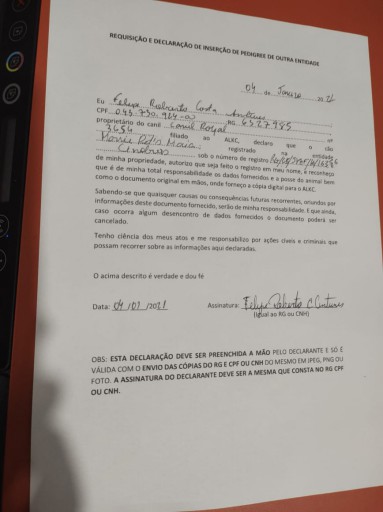 REQUISIÇÃO E DECLARAÇÃO DE INSERÇÃO DE PEDIGREE DE OUTRA ENTIDADE
04 de Janeiro
Eu Felipe Roberto Costa
CPF RG 6327955
proprietário do canil Canil Royal nº
3654 filiado ao ALKC, declaro que o cão
registrado na entidade
sob o número de registro
de minha propriedade, autorizo que seja feito o registro em meu nome, e reconheço
que é de minha total responsabilidade os dados fornecidos e a posse do animal bem
como o documento original em mãos, onde forneço a cópia digital para o ALKC.
Sabendo-se que quaisquer causas ou consequências futuras recorrentes, oriundos por
informações deste documento fornecido, serão de minha responsabilidade. E que ainda,
caso ocorra algum desencontro de dados fornecidos o documento poderá ser
cancelado.
Tenho ciência dos meus atos e me responsabilizo por ações cíveis e criminais que
possam recorrer sobre as informações aqui declaradas.
O acima descrito é verdade e dou fé
Data: 04/01/2021 Assinatura: Felipe Roberto C
(Igual ao RG ou CNH)
OBS: ESTA DECLARAÇÃO DEVE SER PREENCHIDA A MÃO PELO DECLARANTE E SÓ É
VÁLIDA COM O ENVIO DAS CÓPIAS DO RG E CPF OU CNH DO MESMO EM JPEG, PNG OU
FOTO. A ASSINATURA DO DECLARANTE DEVE SER A MESMA QUE CONSTA NO RG CPF
OU CNH.